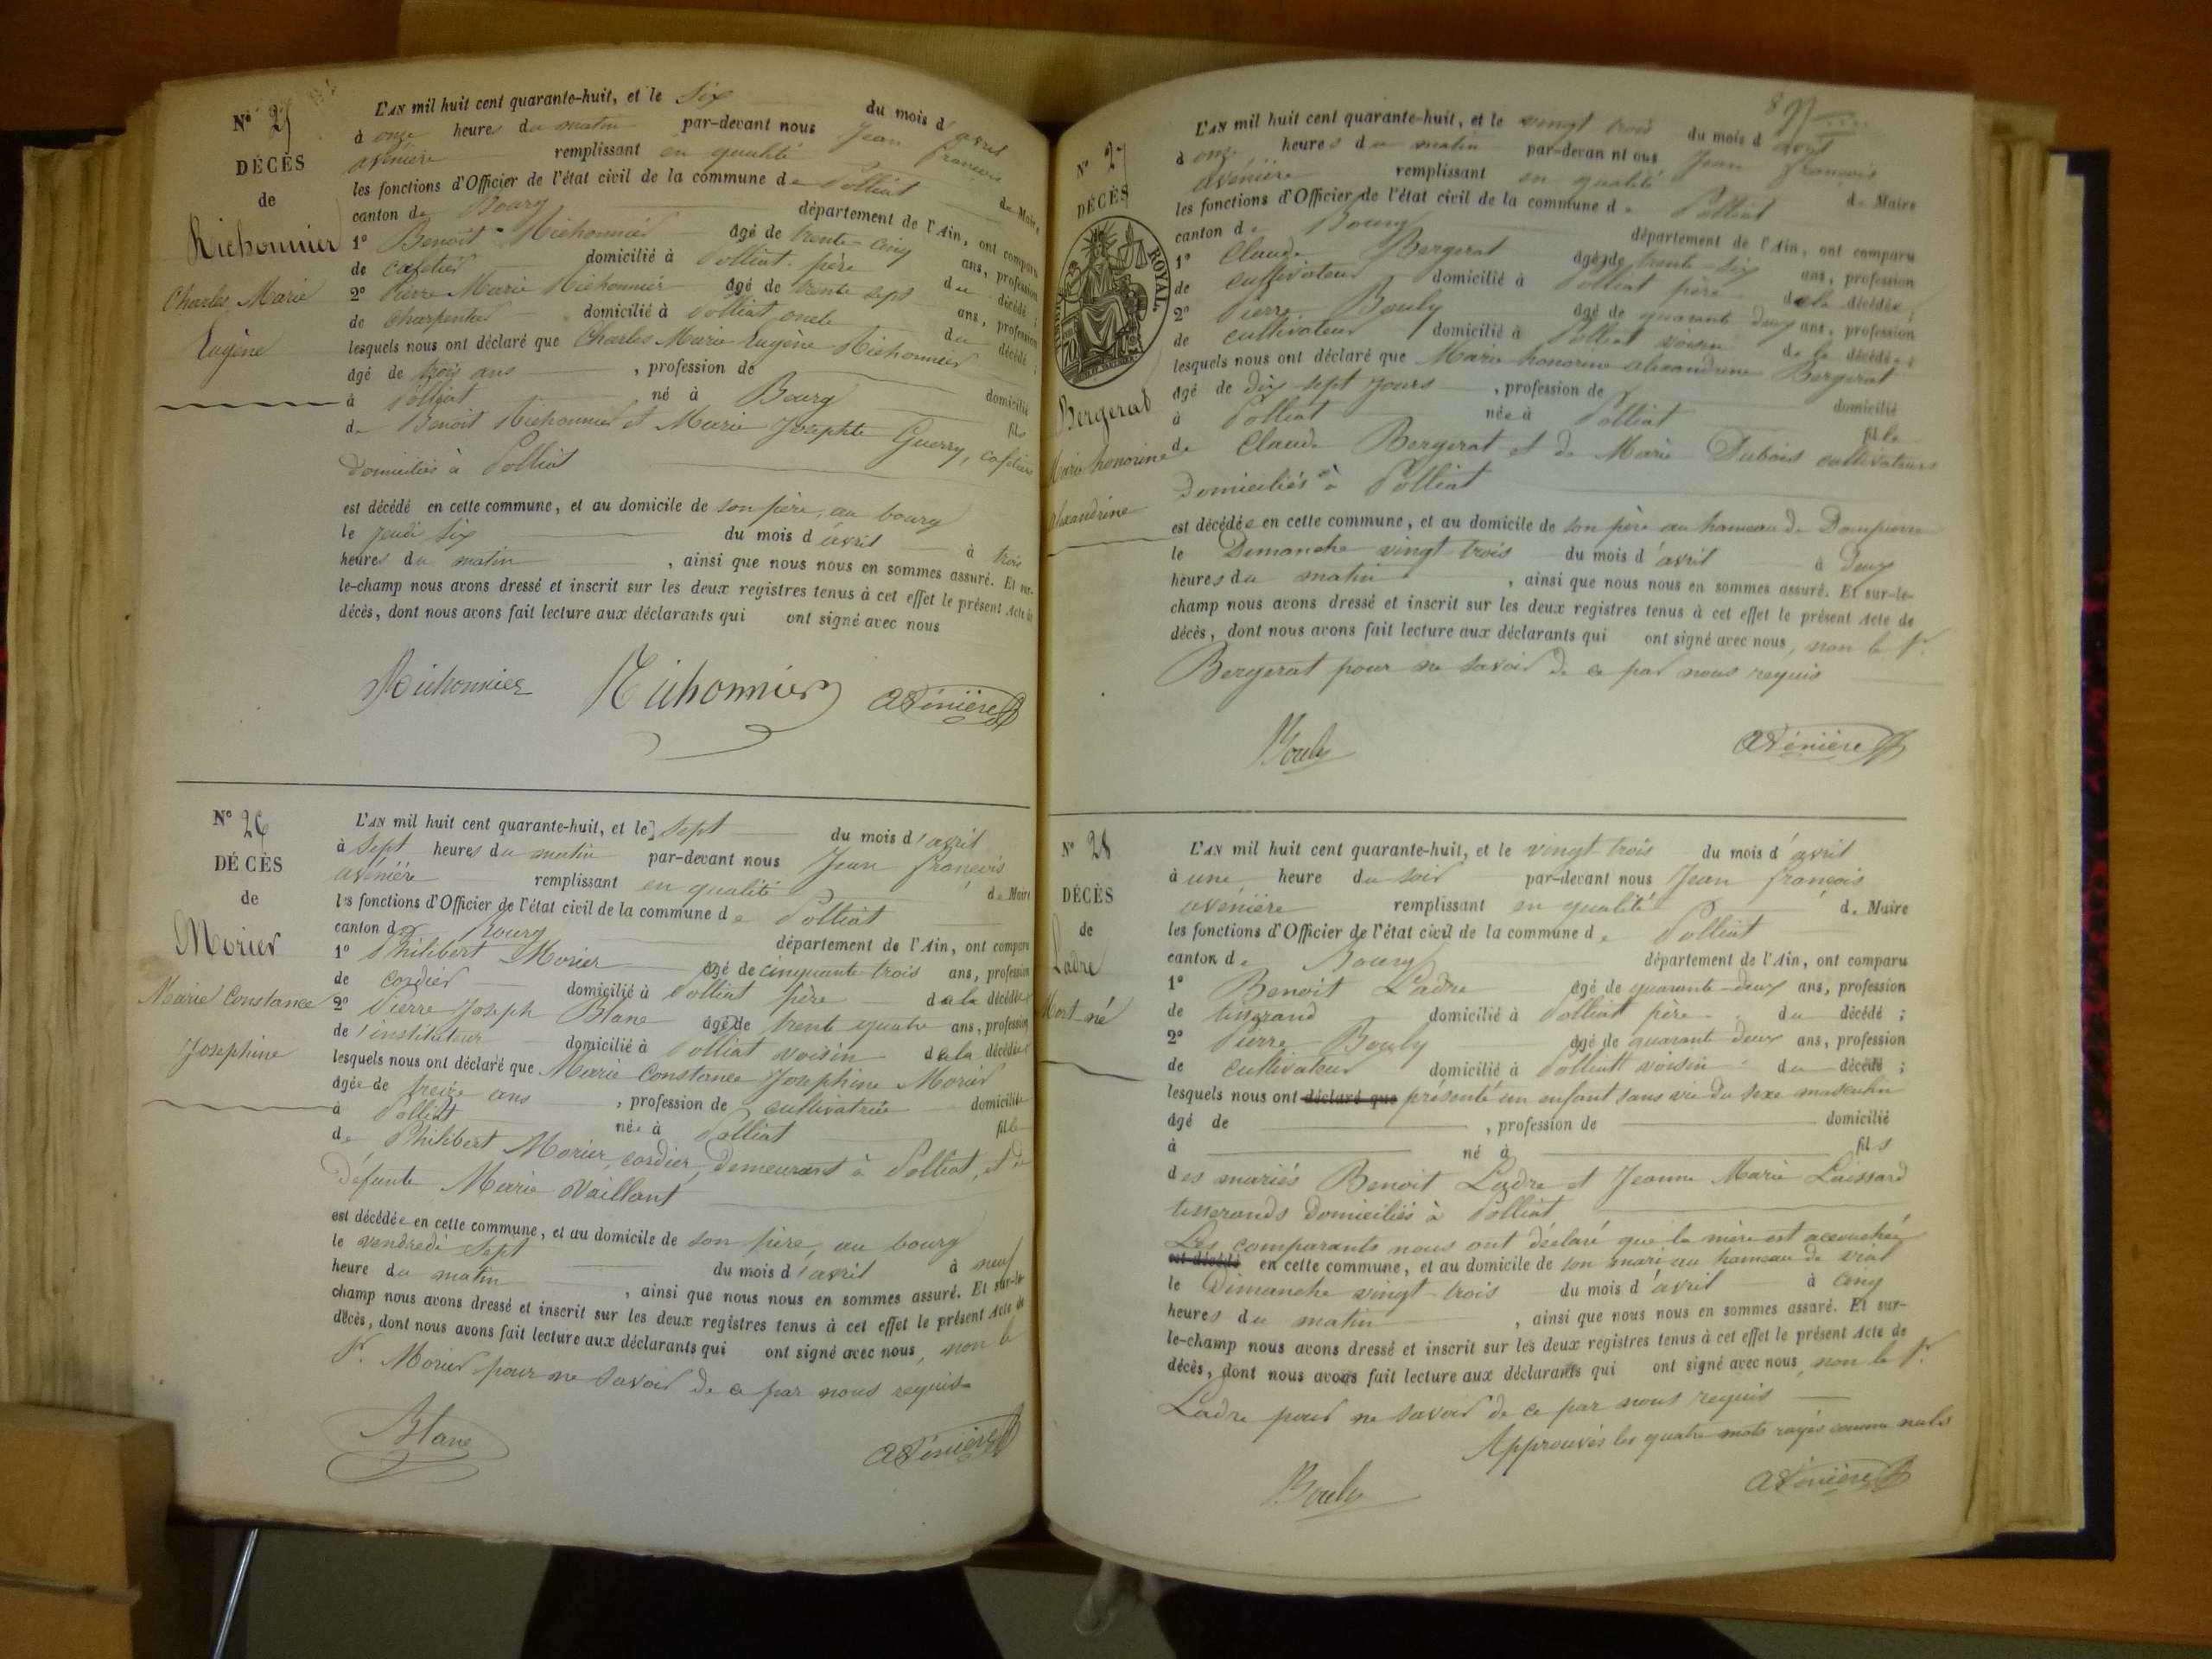 N° 25
DÉCÈS
de
Richonnier
Charles Marie
Eugène
L'AN mil huit cent quarante-huit, et le six du mois d'avril
à onze heures du matin par-devant nous Jean françois
avénière remplissant en qualité de Maire
les fonctions d'Officier de l'état civil de la commune de Polliat
canton de Bourg département de l'Ain, ont comparu
1° Benoit Richonnier âgé de trente-cinq ans, profession
de cafetier domicilié à Polliat père du décédé ;
2° Pierre Marie Richonnier âgé de trente sept ans, profession
de charpentier domicilié à Polliat oncle du décédé ;
lesquels nous ont déclaré que Charles Marie Eugène Richonnier
âgé de trois ans , profession de domicilié
à Polliat né à Bourg fils
de Benoit Richonnier et Marie Josephte Guerry, cafetiers
Domiciliés à Polliat
est décédé en cette commune, et au domicile de son père, au bourg
le jeudi six du mois d'avril à trois
heures du matin , ainsi que nous nous en sommes assuré. Et sur-
le-champ nous avons dressé et inscrit sur les deux registres tenus à cet effet le présent Acte de
décès, dont nous avons fait lecture aux déclarants qui ont signé avec nous
Richonnier Richonnier Avénière
N° 26
DÉCÈS
de
Morier
Marie Constance
Josephine
L'AN mil huit cent quarante-huit, et le sept du mois d'avril
à sept heures du matin par-devant nous Jean françois
avénière remplissant en qualité de Maire
les fonctions d'Officier de l'état civil de la commune de Polliat
canton de Bourg département de l'Ain, ont comparu
1° Philibert Morier âgé de cinquante-trois ans, profession
de cordier domicilié à Polliat père de la décédée
2° Pierre Joseph Blanc âgé de trente quatre ans, profession
de l'instituteur domicilié à Polliat voisin de la décédée
lesquels nous ont déclaré que Marie Constance Josephine Morier
âgée de treize ans , profession de cultivatrice domiciliée
à Polliat née à Polliat fille
de Philibert Morier, cordier, demeurant à Polliat, et de
défunte Marie Vaillant
est décédée en cette commune, et au domicile de son père, au bourg
le vendredi sept du mois d'avril à neuf
heure du matin , ainsi que nous nous en sommes assuré. Et sur-le-
champ nous avons dressé et inscrit sur les deux registres tenus à cet effet le présent Acte de
décès, dont nous avons fait lecture aux déclarants qui ont signé avec nous, non le
Sr. Morier pour ne savoir de ce par nous requis
Blanc Avénière
N° 27
DÉCÈS
ROYAL
Bergerat
Marie honorine
alexandrine
L'AN mil huit cent quarante-huit, et le vingt trois du mois d'avril
à onze heures du matin par-devan nt ous Jean françois
avénière remplissant en qualité de Maire
les fonctions d'Officier de l'état civil de la commune de Polliat
canton de Bourg département de l'Ain, ont comparu
1° Claude Bergerat âgé de trente-six ans, profession
de cultivateur domicilié à Polliat père de la décédée ;
2° Pierre Bouly âgé de quarante deux ans, profession
de cultivateur domicilié à Polliat voisin de la décédée ;
lesquels nous ont déclaré que Marie honorine alexandrine Bergerat
âgé de dix sept jours , profession de domicilié
à Polliat née à Polliat fille
de Claude Bergerat et de Marie Dubois cultivateurs
Domiciliés à Polliat
est décédée en cette commune, et au domicile de son père au hameau de Dompierre
le Dimanche vingt trois du mois d'avril à Deux
heures du matin , ainsi que nous nous en sommes assuré. Et sur-le-
champ nous avons dressé et inscrit sur les deux registres tenus à cet effet le présent Acte de
décès, dont nous avons fait lecture aux déclarants qui ont signé avec nous, non le Sr.
Bergerat pour ne savoir de ce par nous requis
Bouly Avénière
N° 28
DÉCÈS
de
Ladre
Mort né
L'AN mil huit cent quarante-huit, et le vingt trois du mois d'avril
à une heure du soir par-devant nous Jean françois
avénière remplissant en qualité de Maire
les fonctions d'Officier de l'état civil de la commune de Polliat
canton de Bourg département de l'Ain, ont comparu
1° Benoit Ladre âgé de quarante-deux ans, profession
de tisserand domicilié à Polliat père du décédé ;
2° Pierre Bouly âgé de quarante deux ans, profession
de cultivateur domicilié à Polliat voisin du décédé ;
lesquels nous ont déclaré que présenté un enfant sans vie du sexe masculin
âgé de , profession de domicilié
à né à fils
des mariés Benoit Ladre et Jeanne Marie Laissard
tisserands Domiciliés à Polliat
Les comparants nous ont déclaré que la mère est accouchée
est décédé en cette commune, et au domicile de son mari au hameau de
le Dimanche vingt-trois du mois d'avril à cinq
heures du matin , ainsi que nous nous en sommes assuré. Et sur-
le-champ nous avons dressé et inscrit sur les deux registres tenus à cet effet le présent Acte de
décès, dont nous avons fait lecture aux déclarants qui ont signé avec nous, non le Sr.
Ladre pour ne savoir de ce par nous requis
Approuvés les quatre mots rayés comme nuls
Bouly Avénière